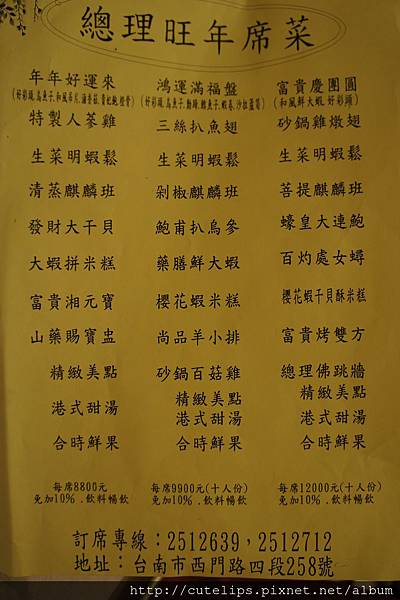 總理旺年席菜
年年好運來
特製人蔘雞
生菜明蝦鬆
清蒸麒麟班
發財大干貝
大蝦拼米糕
富貴湘元寶
山藥賜寶盅
精緻美點
港式甜湯
合時鮮果
每席8800元
免加10%.飲料暢飲
鴻運滿福盤
三絲扒魚翅
生菜明蝦鬆
剁椒麒麟班
鮑甫扒烏參
藥膳鮮大蝦
櫻花蝦米糕
尚品羊小排
砂鍋百菇雞
精緻美點
港式甜湯
合時鮮果
每席9900元(十人份)
免加10%.飲料暢飲
富貴慶團圓
(和風鮮大蝦.好彩頭)
砂鍋雞燉翅
生菜明蝦鬆
菩提麒麟班
蠔皇大連鮑
百灼處女蟳
櫻花蝦干貝酥米糕
富貴烤雙方
總理佛跳牆
精緻美點
港式甜湯
合時鮮果
每席12000元(十人份)
免加10%.飲料暢飲
訂席專線：2512639，2512712
地址：台南市西門路四段258號
http://cutelips.pixnet.net/album